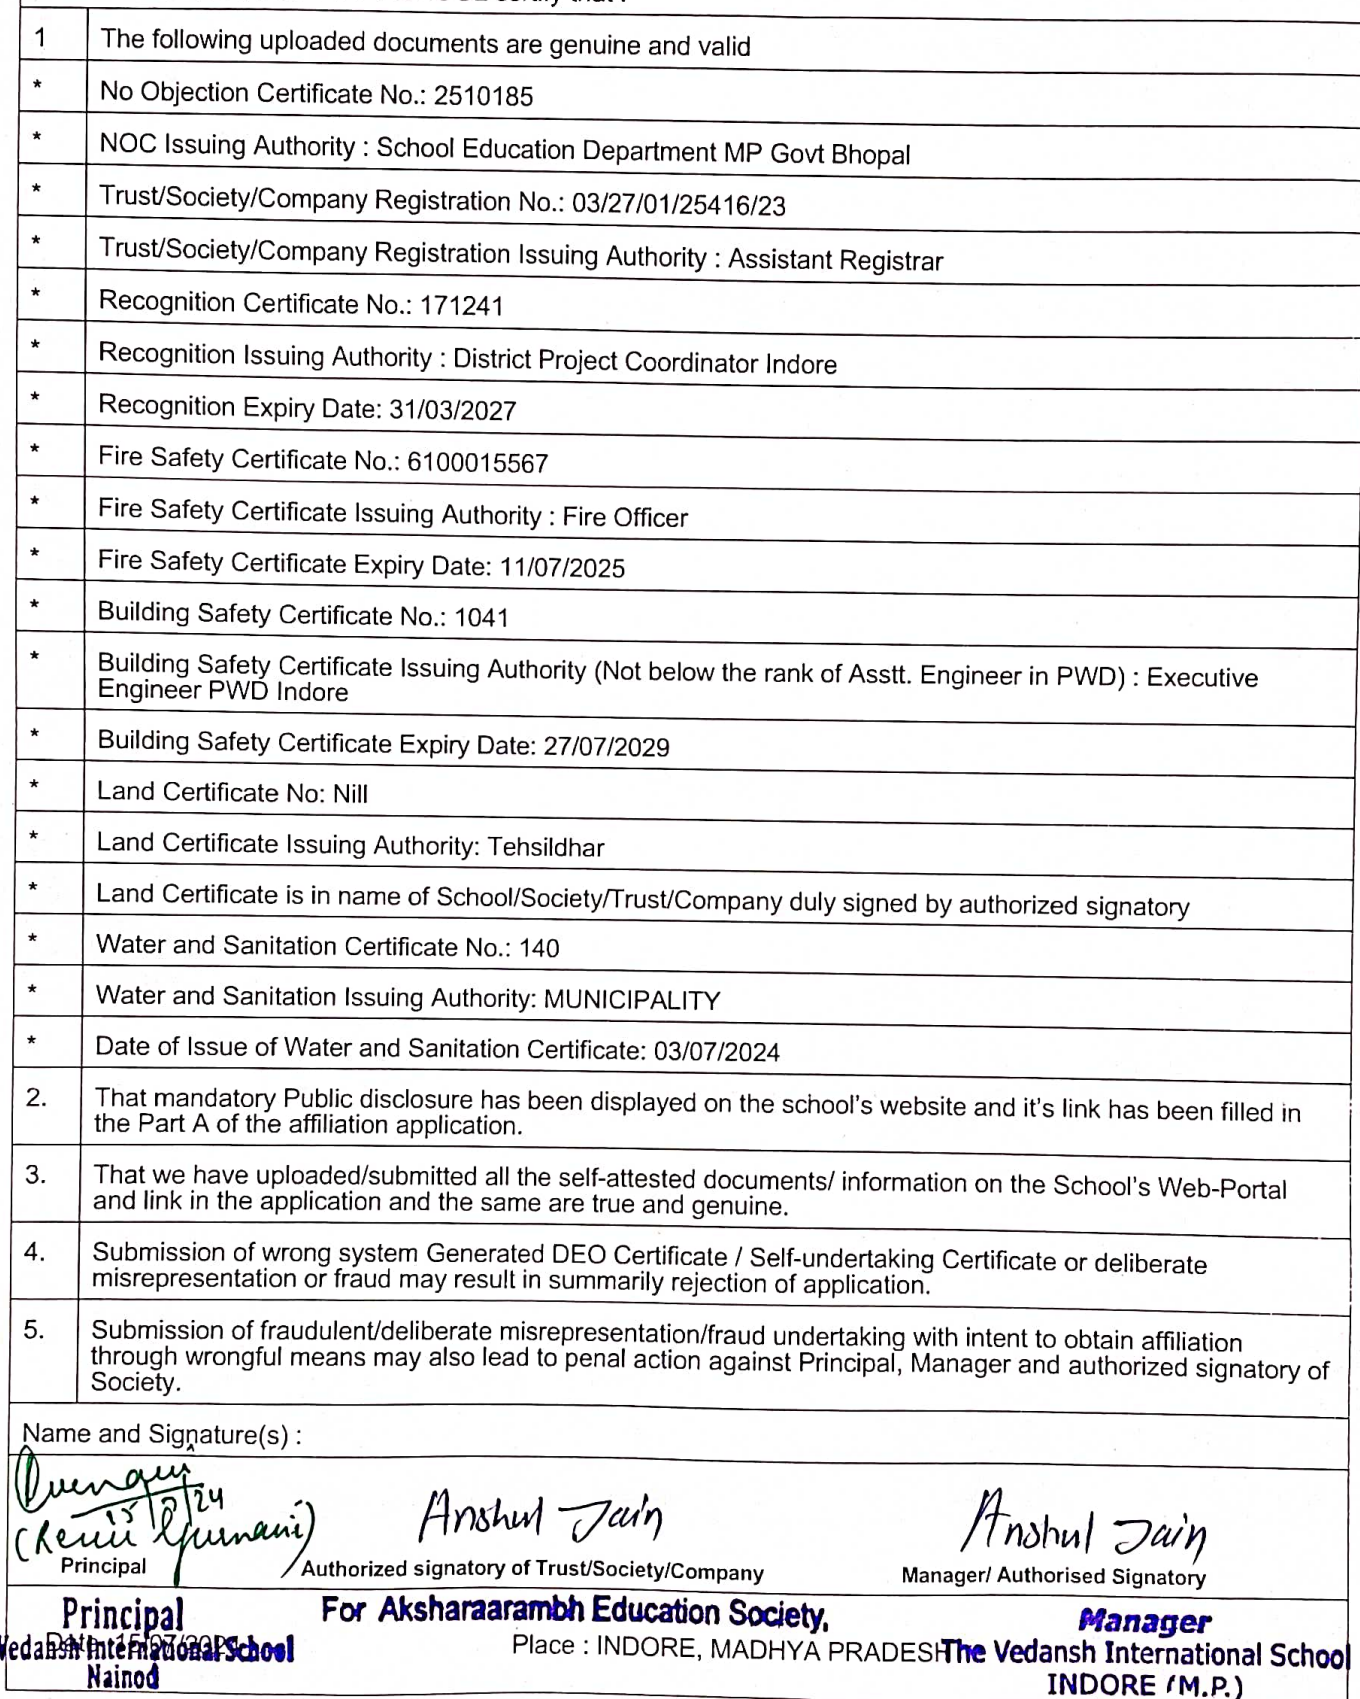 1 The following uploaded documents are genuine and valid
* No Objection Certificate No.: 2510185
* NOC Issuing Authority : School Education Department MP Govt Bhopal
* Trust/Society/Company Registration No.: 03/27/01/25416/23
* Trust/Society/Company Registration Issuing Authority : Assistant Registrar
* Recognition Certificate No.: 171241
* Recognition Issuing Authority : District Project Coordinator Indore
* Recognition Expiry Date: 31/03/2027
* Fire Safety Certificate No.: 6100015567
* Fire Safety Certificate Issuing Authority : Fire Officer
* Fire Safety Certificate Expiry Date: 11/07/2025
* Building Safety Certificate No.: 1041
* Building Safety Certificate Issuing Authority (Not below the rank of Asstt. Engineer in PWD) : Executive
Engineer PWD Indore
* Building Safety Certificate Expiry Date: 27/07/2029
* Land Certificate No: Nill
* Land Certificate Issuing Authority: Tehsildhar
* Land Certificate is in name of School/Society/Trust/Company duly signed by authorized signatory
* Water and Sanitation Certificate No.: 140
* Water and Sanitation Issuing Authority: MUNICIPALITY
* Date of Issue of Water and Sanitation Certificate: 03/07/2024
2. That mandatory Public disclosure has been displayed on the school's website and it's link has been filled in
the Part A of the affiliation application.
3. That we have uploaded/submitted all the self-attested documents/ information on the School's Web-Portal
and link in the application and the same are true and genuine.
4. Submission of wrong system Generated DEO Certificate / Self-undertaking Certificate or deliberate
misrepresentation or fraud may result in summarily rejection of application.
5. Submission of fraudulent/deliberate misrepresentation/fraud undertaking with intent to obtain affiliation
through wrongful means may also lead to penal action against Principal, Manager and authorized signatory of
Society.
Name and Signature(s) :
Anshul Jain Anshul Jain
Principal Authorized signatory of Trust/Society/Company Manager/ Authorised Signatory
Principal For Aksharaarambh Education Society, Manager
Vedansh International School Place : INDORE, MADHYA PRADESH The Vedansh International School
Nainod INDORE (M.P.)